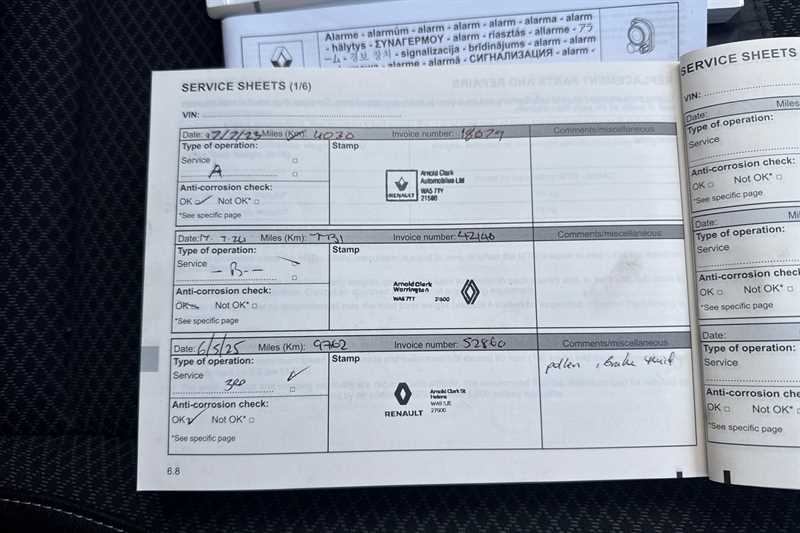 Alarme - alarmüm - alarm - alarm - alarm - alarma - alarm
- hälytys - ΣΥΝΑΓΕΡΜΟΥ - alarm - riasztás - allarme -
- signalizacija - brīdinājums - alarm -
- alarme - alarmă - СИГНАЛИЗАЦИЯ - alarm -
SERVICE SHEETS (1/6)
VIN:
Date: 7/7/23 Miles (Km): 4070 Invoice number: 18079 Comments/miscellaneous
Type of operation: Stamp
Service
A
Arnold Clark
Automobiles Ltd
WA5 7TY
21500
RENAULT
Anti-corrosion check:
OK Not OK*
*See specific page
Date: Miles (Km): 7731 Invoice number: 42140 Comments/miscellaneous
Type of operation: Stamp
Service
- B - -
Arnold Clark
Warrington
WA5 7TY 21500
Anti-corrosion check:
OK Not OK*
*See specific page
Date: 6/5/25 Miles (Km): 9762 Invoice number: 52860 Comments/miscellaneous
Type of operation: Stamp
Service
3RD
pollen, Brake
RENAULT
Arnold Clark St
Helens
Anti-corrosion check:
OK Not OK*
*See specific page
6.8
SERVICE SHEETS
VIN:
Date: Miles
Type of operation:
Service
Anti-corrosion check:
OK Not OK*
*See specific page
Date: Miles
Type of operation:
Service
Anti-corrosion check:
OK Not OK*
*See specific page
Date:
Type of operation:
Service
Anti-corrosion check:
OK Not OK*
*See specific page